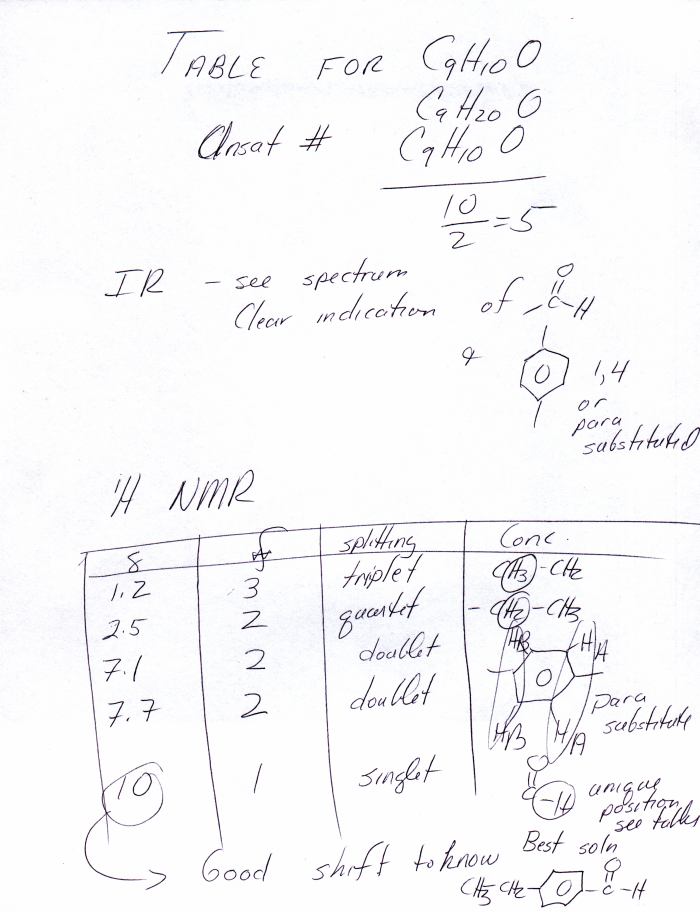 TABLE FOR C9H10O
C9H20O
Unsat # C9H10O
10/2 = 5
IR - see spectrum
Clear indication of -C-H
O
&
1,4
or
para
substituted
1H NMR
δ ∫ splitting Conc.
1.2 3 triplet CH3-CH2
2.5 2 quartet -CH2-CH3
7.1 2 doublet HB HA
7.7 2 doublet HB HA para
substitute
10 1 singlet O
C-H unique
position
see table
Good shift to know Best soln
CH3CH2- -C-H
O